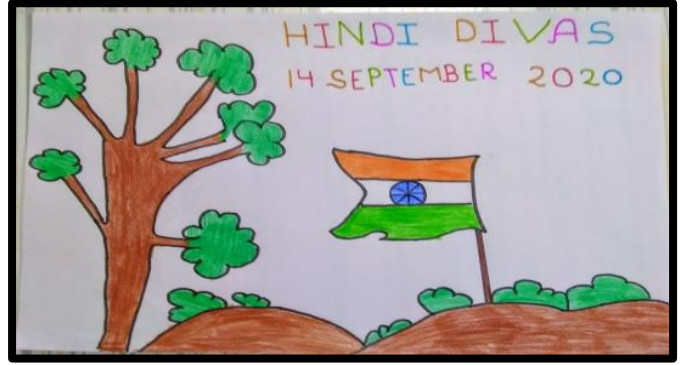 HINDI DIVAS
14 SEPTEMBER 2020